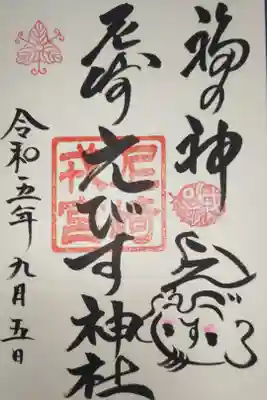 福の神
尼崎えびす神社
尼崎
戎宮
令和五年九月五日